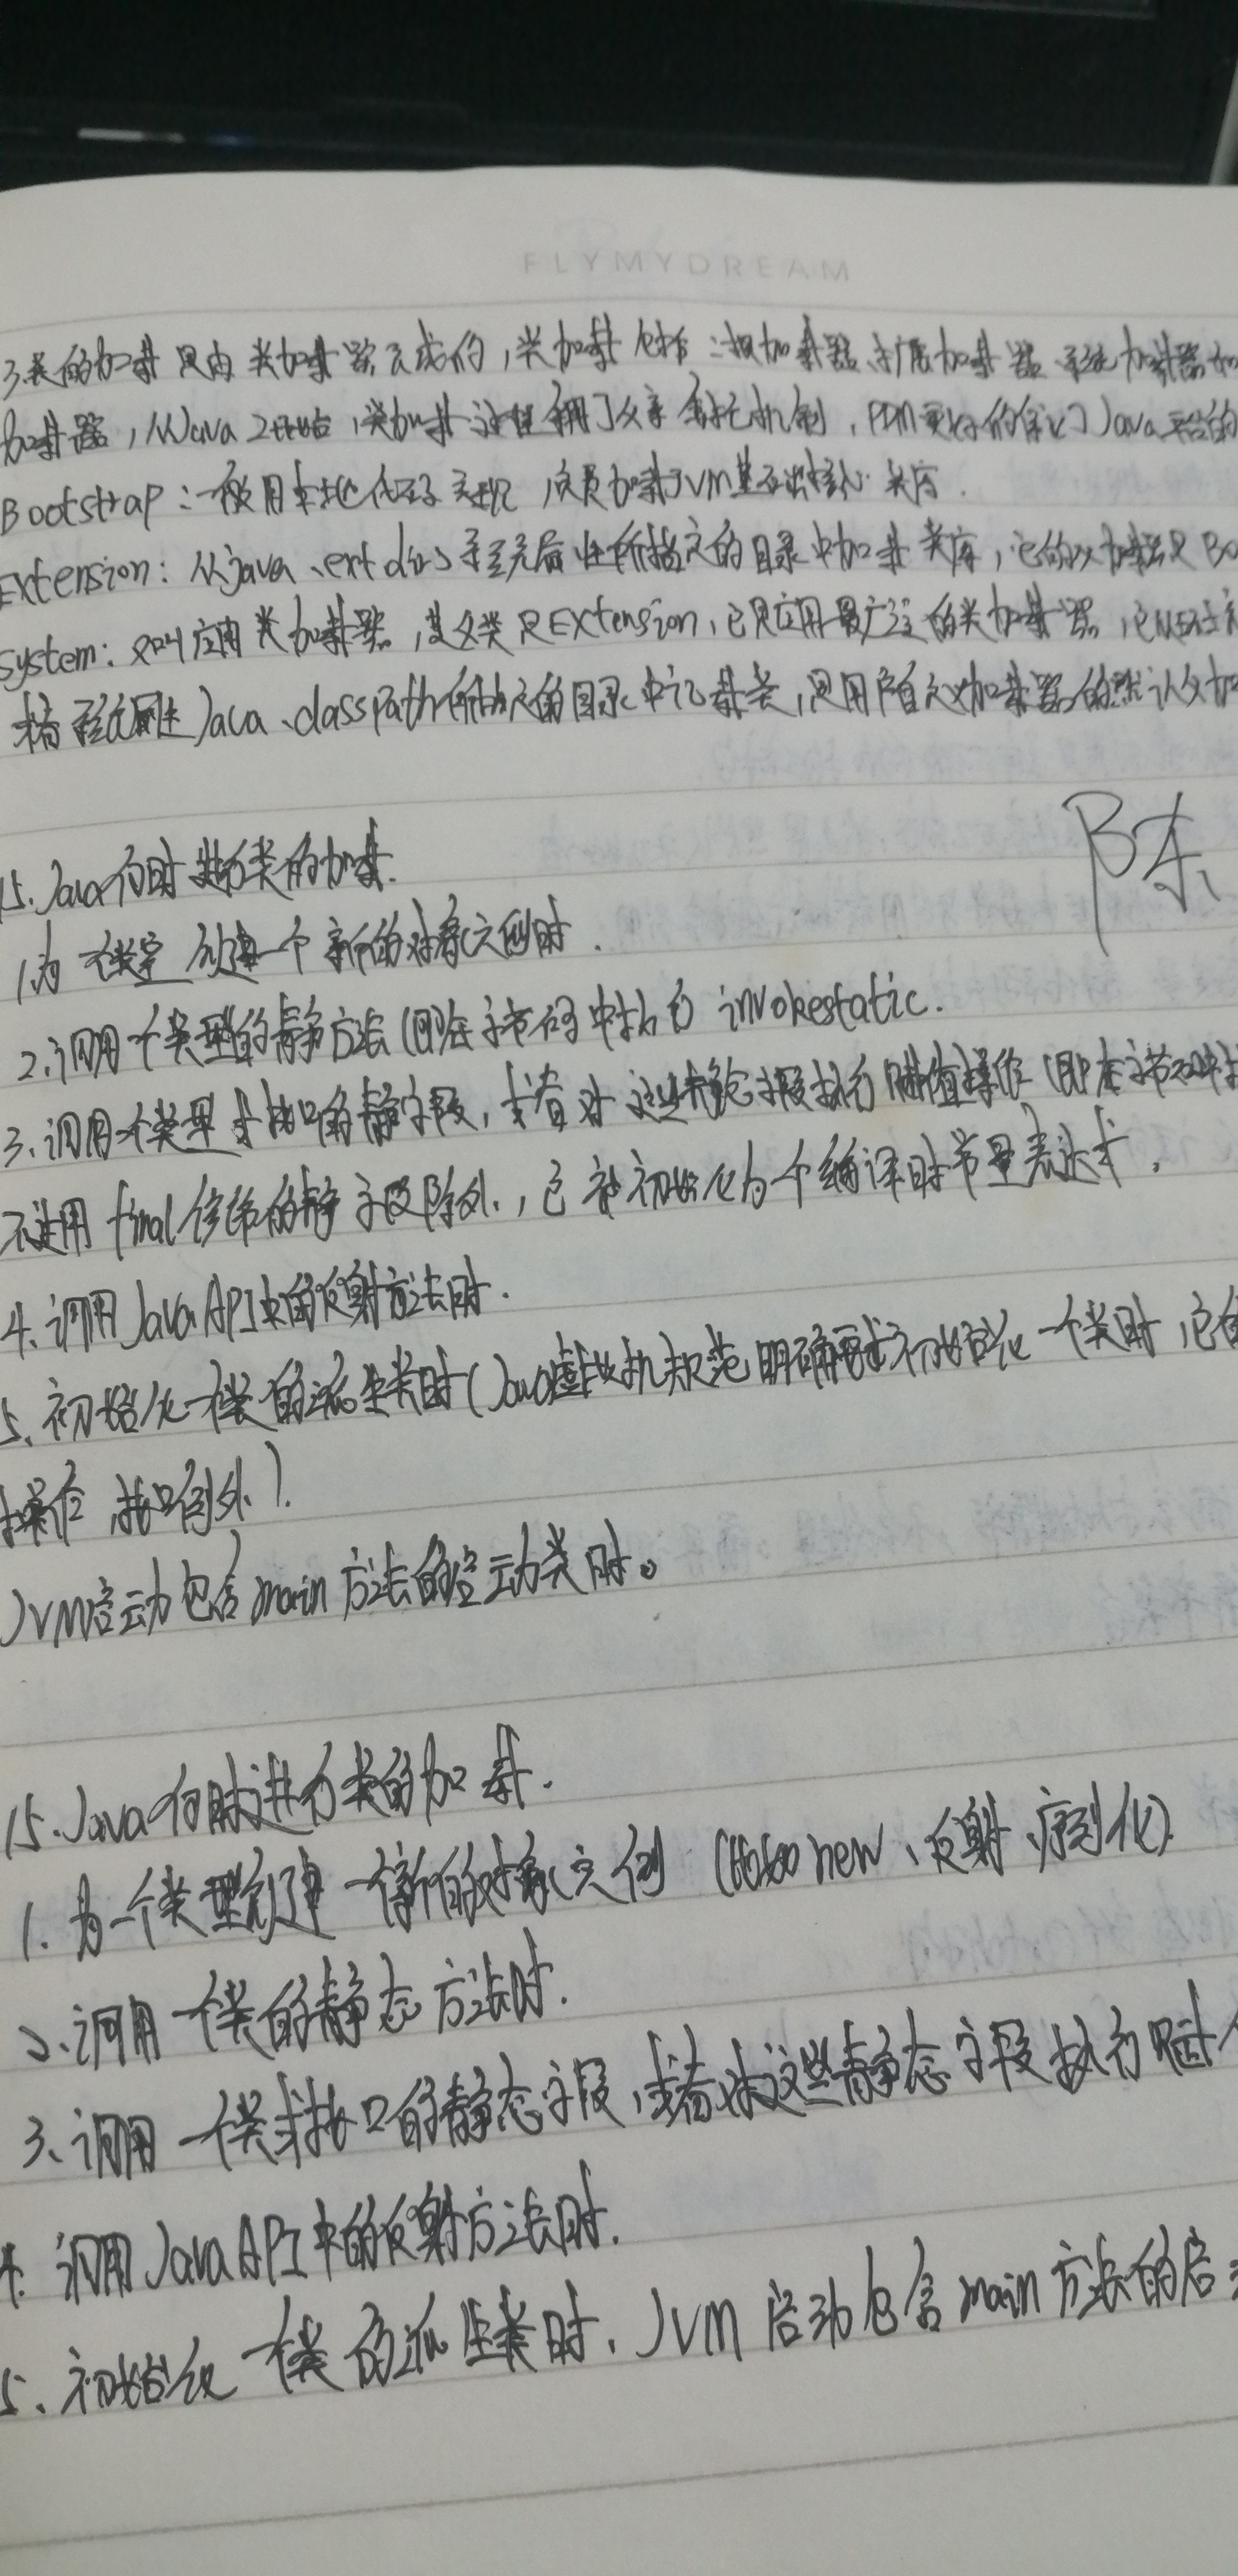 FLYMYDREAM
3.类的加载是由类加载器完成的,类加载包括:根加载器、扩展加载器、系统加载器
加载器,从Java 2开始,类加载过程采用了父亲委托机制,PDM更好的保证了Java平台的
Bootstrap:一般用本地代码实现,负责加载JVM基础核心类库.
Extension:从java.ext.dirs系统属性所指定的目录中加载类库,它的父加载器是Bo
System:又叫应用类加载器,其父类是Extension,它是应用最广泛的类加载器,它从
系统属性Java.classPath所指定的目录中记载类,是用户自定义加载器的默认父加
15.Java何时进行类的加载.
陈
1.为一个类型创建一个新的对象实例时.
2.调用一个类型的静态方法(即在字节码中执行 invokestatic.
3.调用一个类型或接口的静态字段,或者对这些静态字段执行赋值操作(即在字节码中
不过用final修饰的静态字段除外,它被初始化为个编译时常量表达式.
4.调用Java API中的反射方法时.
5.初始化一个类的派生类时(Java虚拟机规范明确要求初始化一个类时,它
操作,接口例外).
JVM启动包含main方法的启动类时。
15.Java何时进行类的加载.
1.为一个类型创建一个新的对象实例(new、反射、序列化).
2.调用一个类的静态方法时.
3.调用一个类或接口的静态字段,或者对这些静态字段执行赋
4.调用Java API中的反射方法时.
5.初始化一个类的派生类时.JVM启动包含main方法的启